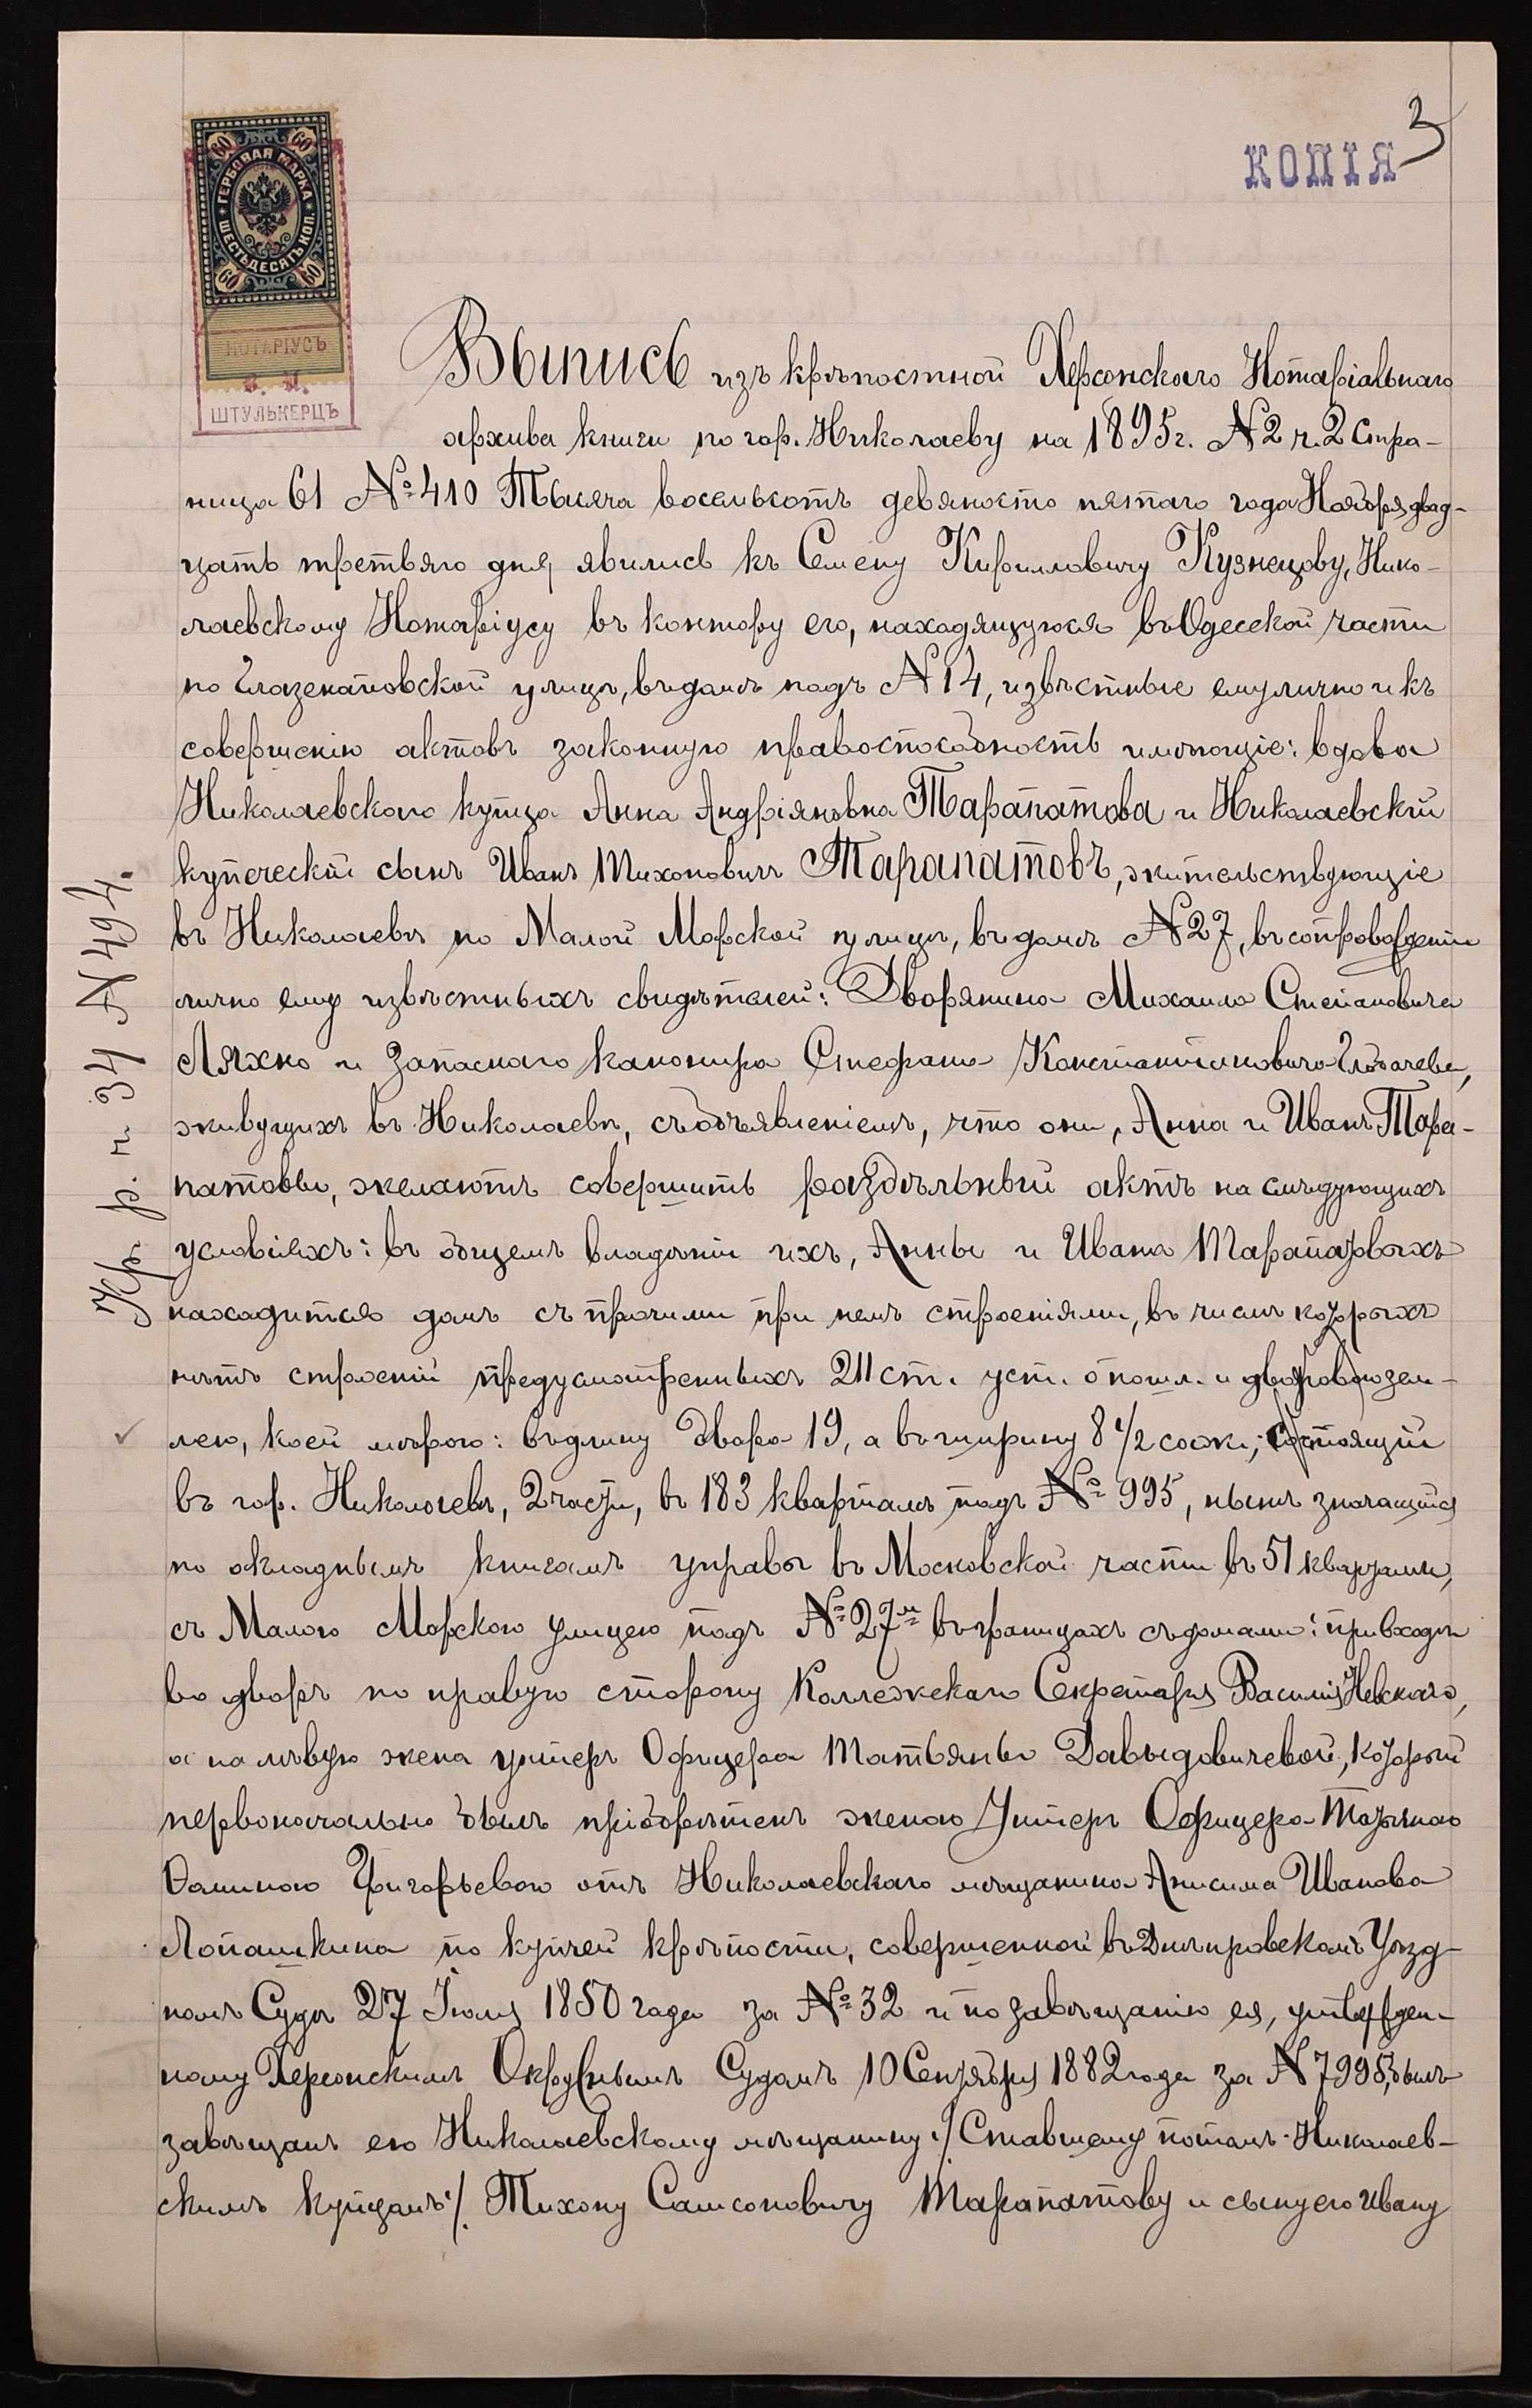 3
КОПІЯ
ГЕРБОВАЯ МАРКА
ШЕСТЬДЕСЯТЪ КОП.
60 60
60 60
НОТАРІУСЪ
ШТУЛЬКЕРЦЪ
Выпись изъ крѣпостной Херсонскаго Нотаріальнаго
архива книги по гор. Николаеву на 1895 г. N 2 ч. 2 Стра-
ница 61 № 410 Тысяча восемьсотъ девяносто пятаго года Ноября двад-
цать третьяго дня, явились къ Семену Кирилловичу Кузнецову, Нико-
лаевскому Нотаріусу въ контору его, находящуюся въ Одесской части
по Глазенаповской улицѣ, въ домѣ подъ N 14, извѣстные ему лично и къ
совершенію актовъ законную правоспособность имѣющіе: вдова
Николаевскаго купца Анна Андріяновна Тарапатова и Николаевскій
купеческій сынъ Иванъ Тихоновичъ Тарапатовъ, жительствующіе
въ Николаевѣ по Малой Морской улицѣ, въ домѣ N 27, въ сопровожденіи
лично ему извѣстныхъ свидѣтелей: Дворянина Михаила Степановича
Ляхно и Запаснаго канонира Стефана Константиновича
живущихъ въ Николаевѣ, съ объявленіемъ, что они, Анна и Иванъ Тара-
патовы, желаютъ совершить раздѣльный актъ на слѣдующихъ
условіяхъ: въ общемъ владѣніи ихъ, Анны и Ивана Тарапатовыхъ
находится домъ съ прочими при немъ строеніями, въ числѣ которыхъ
нѣтъ строеній предусмотренныхъ 211 ст. уст. о пошл. и дворовою зем-
лею, коей мѣрою: въ длину двора 19, а въ ширину 8 1/2 саж; состоящій
въ гор. Николаевѣ, 2 части, въ 183 кварталѣ подъ № 995, нынѣ значащійся
по окладнымъ книгамъ управы въ Московской части въ 51 кварталѣ,
съ Малою Морскою улицею подъ № 27м въ границахъ съ домами: при входѣ
во дворъ по правую сторону Коллежскаго Секретаря Василія Невскаго,
а по лѣвую жена унтеръ Офицера Татьяны Давыдовичевой, который
первоначально былъ пріобрѣтенъ женою Унтеръ Офицера Татьяною
Григорьевою отъ Николаевскаго мѣщанина Анисима Иванова
Лопашкина по купчей крѣпости, совершенной въ Днѣпровскомъ Уѣзд-
номъ Судѣ 27 Іюля 1850 года за № 32 и по завѣщанію ея, утвержден-
ному Херсонскимъ Окружнымъ Судомъ 10 Сентября 1882 года за N 7995, былъ
завѣщанъ ею Николаевскому мѣщанину /Ставшему потомъ Николаев-
скимъ купцомъ/. Тихону Самсоновичу Тарапатову и сыну его Ивану
Кр. р. ч. 34 N 494.